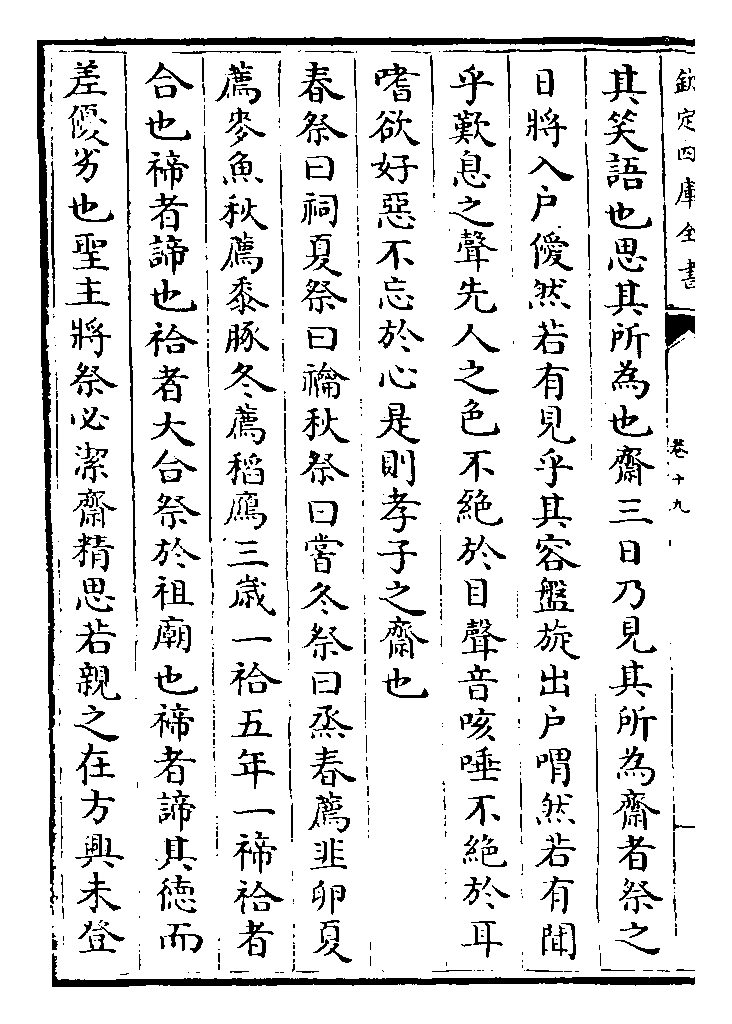 欽定四庫全書
卷十九
其笑語也思其所為也齋三日乃見其所為齋者祭之
日將入户僾然若有見乎其容盤旋出户喟然若有聞
乎歎息之聲先人之色不絶於目聲音咳唾不絶於耳
嗜欲好惡不忘於心是則孝子之齋也
春祭曰祠夏祭曰禴秋祭曰嘗冬祭曰烝春薦韭卵夏
薦麥魚秋薦黍豚冬薦稻鴈三歳一祫五年一禘祫者
合也禘者諦也祫者大合祭於祖廟也禘者諦其徳而
差優劣也聖主將祭必潔齋精思若親之在方興未登